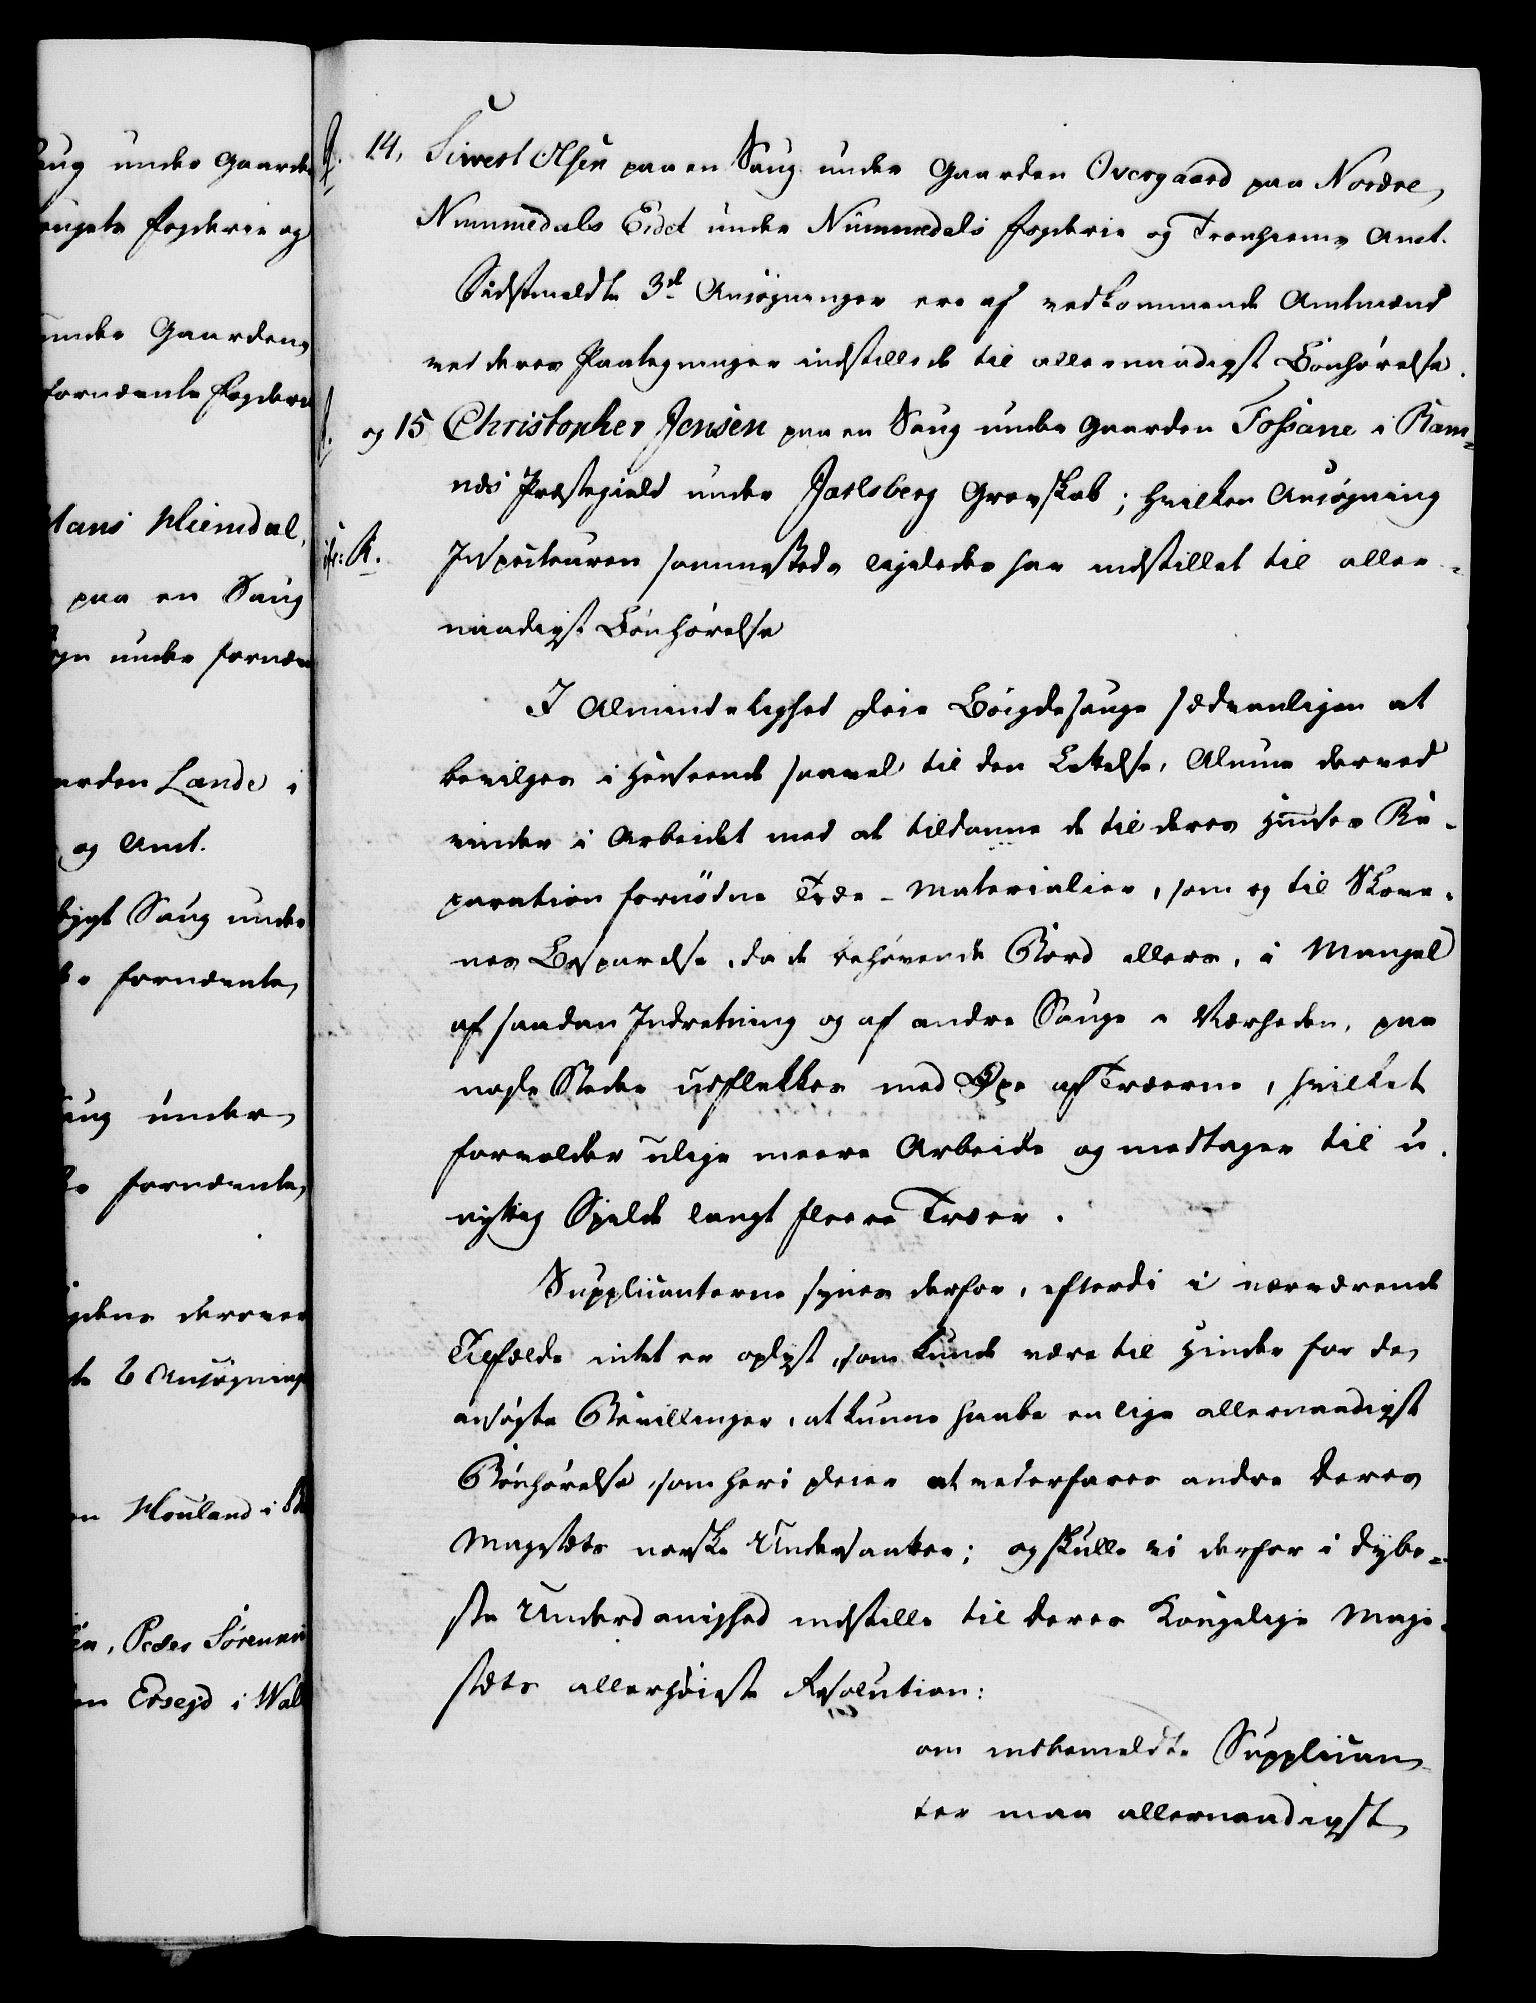 aug under Gaarde
ougets Fogderie og
under Gaarden
fornævnte Fogderi
Hans Hiemdal,
paa en Saug
ogn under fornæv
arden Lande i
og Amt.
bygt Saug under
fornævnte
aug under
fornævnte
ygdens derover
te 6 Ansøgning
en Houland i
en, Peder Sörensen
en Ersejd i Wal
14, Sivert Olsen paa en Saug under Gaarden Overgaard paa Nordre
Nummedals Eidet under Nummedals Fogderie og Tronhiems Amt.
Sidstmeldte 3de Ansøgninger ere af vedkommende Amtmænd
ved deres Paategninger indstillede til allernaadigst Bönhørelse.
og 15 Christopher Jensen paa en Saug under Gaarden Fossane i Ram=
næs Præstegield under Jarlsberg Grevskab; hvilken Ansøgning
Inspecteuren sammesteds ligeledes har indstillet til aller-
naadigst Bönhørelse
I Almindelighed pleie Böigdesauge sædvanligen at
bevilges i Henseende saavel til den Lettelse, Almuen derved
vinder i Arbeidet med at tildanne de til deres Huuses Re-
paration fornödne Træe-Materialier, som og til Skove-
nes Besparelse, da de behøvende Bord ellers, i Mangel
af saadan Indretning og af andre Sauge i Nærheden, paa
nogle Steder udflekkes med Öxe af Træerne, hvilket
forvolder ulige meere Arbeide og medtager til u-
nyttig Spilde langt fleere Træer.
Supplicanterne synes derfor, efterdi i nærværende
Tilfælde intet er oplyst, som kunde være til Hinder for de
ansøgte Bevillinger, at kunne haabe en lige allernaadigst
Bönhørelse, som heri pleier at vederfares andre Deres
Majestæts norske Undersaatter; og skulle vi derfor i dybe=
ste Underdanighed indstille til Deres Kongelige Maje-
stæts allerhöieste Resolution:
om indbemeldte Supplican-
ter maa allernaadigst